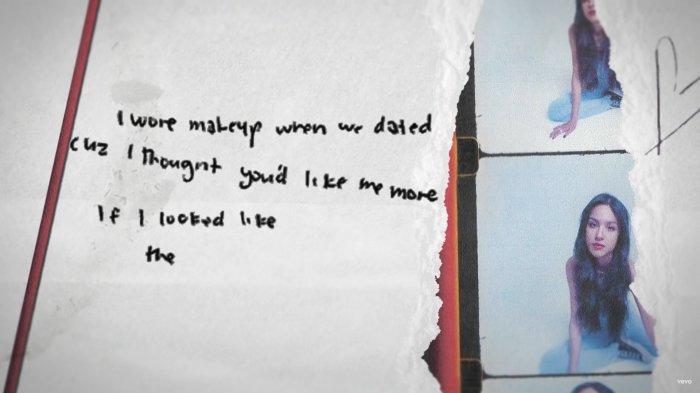 I wore makeup when we dated
cuz I thought you'd like me more
If I looked like
the
vevo